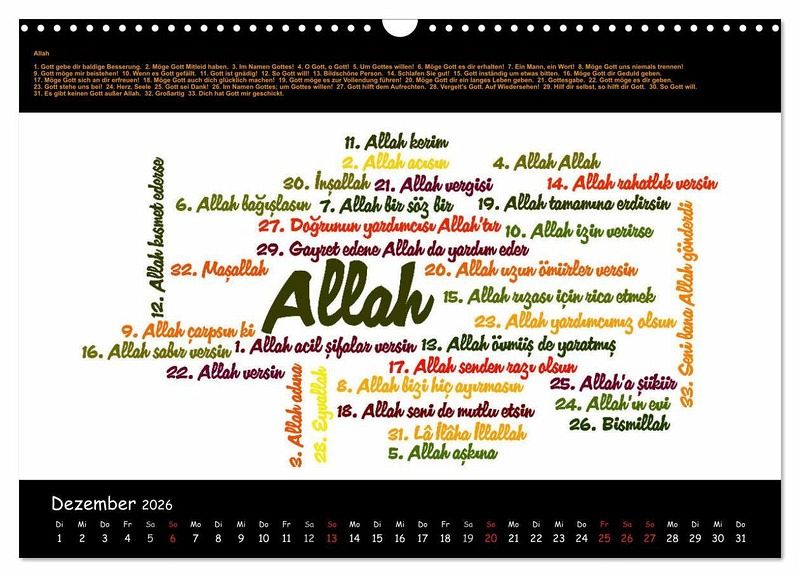 Allah
1. Gott gebe dir baldige Besserung. 2. Möge Gott Mitleid haben. 3. Im Namen Gottes! 4. O Gott, o Gott! 5. Um Gottes willen! 6. Möge Gott es dir erhalten! 7. Ein Mann, ein Wort! 8. Möge Gott uns niemals trennen!
9. Gott möge mir beistehen! 10. Wenn es Gott gefällt. 11. Gott ist gnädig! 12. So Gott will! 13. Bildschöne Person. 14. Schlafen Sie gut! 15. Gott inständig um etwas bitten. 16. Möge Gott dir Geduld geben.
17. Möge Gott sich an dir erfreuen! 18. Möge Gott auch dich glücklich machen! 19. Gott möge es zur Vollendung führen! 20. Möge Gott dir ein langes Leben geben. 21. Gottesgabe. 22. Gott möge es dir geben.
23. Gott stehe uns bei! 24. Herz, Seele 25. Gott sei Dank! 26. Im Namen Gottes; um Gottes willen! 27. Gott hilft dem Aufrechten. 28. Vergelt's Gott. Auf Wiedersehen! 29. Hilf dir selbst, so hilft dir Gott. 30. So Gott will.
31. Es gibt keinen Gott außer Allah. 32. Großartig 33. Dich hat Gott mir geschickt.
11. Allah kerim
2. Allah acısın
4. Allah Allah
30. İnşallah
21. Allah vergisi
14. Allah rahatlık versin
6. Allah bağışlasın
7. Allah bir söz bir
19. Allah tamamına erdirsin
27. Doğrunun yardımcısı Allah'tır
10. Allah izin verirse
29. Gayret edene Allah da yardım eder
12. Allah kısmet ederse
32. Maşallah
Allah
20. Allah uzun ömürler versin
15. Allah rızası için rica etmek
23. Allah yardımcımız olsun
33. Seni bana Allah gönderdi
9. Allah çarpsın ki
16. Allah sabır versin
1. Allah acil şifalar versin
13. Allah övmüş de yaratmış
22. Allah versin
17. Allah senden razı olsun
3. Allah adına
28. Eyvallah
8. Allah bizi hiç ayırmasın
25. Allah'a şükür
18. Allah seni de mutlu etsin
24. Allah'ın evi
31. Lâ İlâha İllallah
26. Bismillah
5. Allah aşkına
Dezember 2026
Di Mi Do Fr Sa So Mo Di Mi Do Fr Sa So Mo Di Mi Do Fr Sa So Mo Di Mi Do Fr Sa So Mo Di Mi Do
1 2 3 4 5 6 7 8 9 10 11 12 13 14 15 16 17 18 19 20 21 22 23 24 25 26 27 28 29 30 31